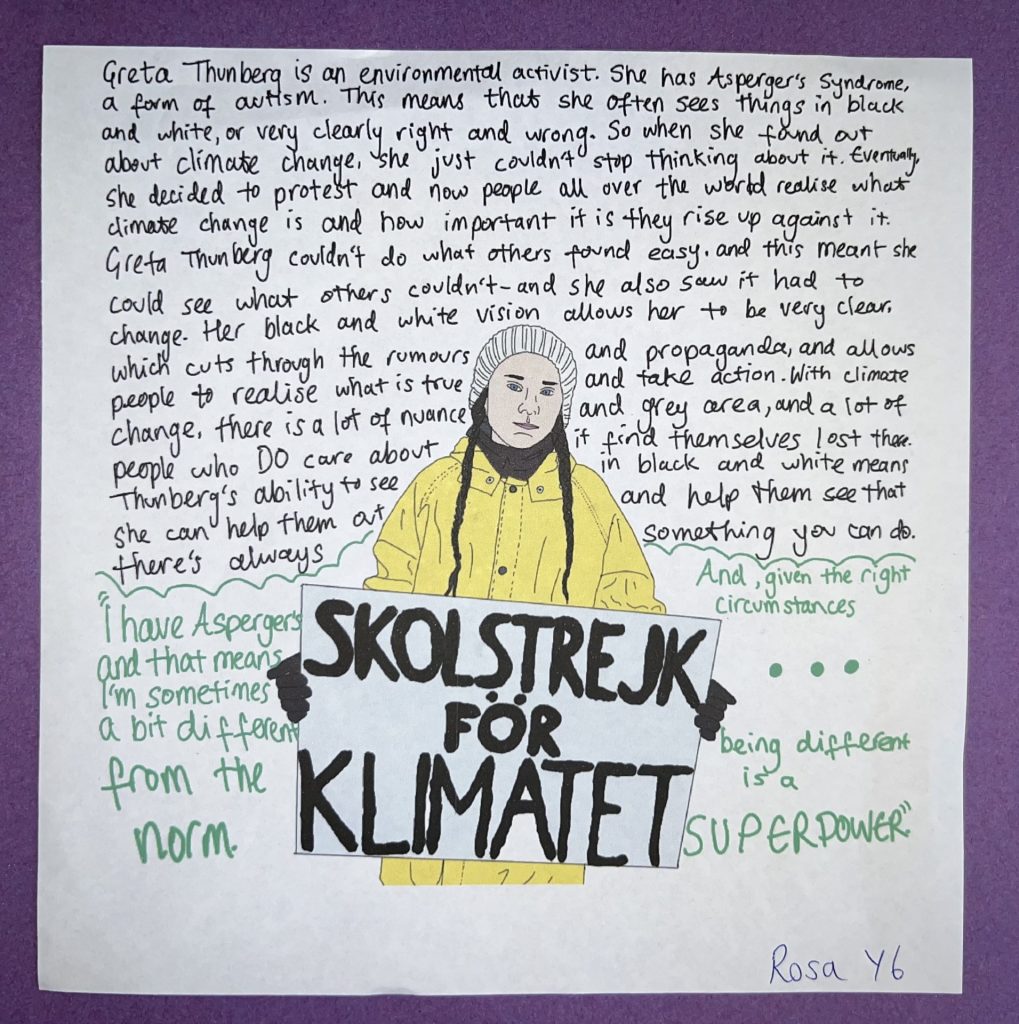 Greta Thunberg is an environmental activist. She has Asperger's Syndrome,
a form of autism. This means that she often sees things in black
and white, or very clearly right and wrong. So when she found out
about climate change, she just couldn't stop thinking about it. Eventually,
she decided to protest and now people all over the world realise what
climate change is and how important it is they rise up against it.
Greta Thunberg couldn't do what others found easy. and this meant she
could see what others couldn't - and she also saw it had to
change. Her black and white vision allows her to be very clear,
which cuts through the rumours and propaganda, and allows
people to realise what is true and take action. With climate
change, there is a lot of nuance and grey area, and a lot of
people who DO care about it find themselves lost there.
Thunberg's ability to see in black and white means
she can help them out and help them see that
there's always something you can do.
"I have Asperger's
and that means
I'm sometimes
a bit different
from the
norm.
And, given the right
circumstances
...
being different
is a
SUPERPOWER"
SKOLSTREJK
FÖR
KLIMATET
Rosa Y6